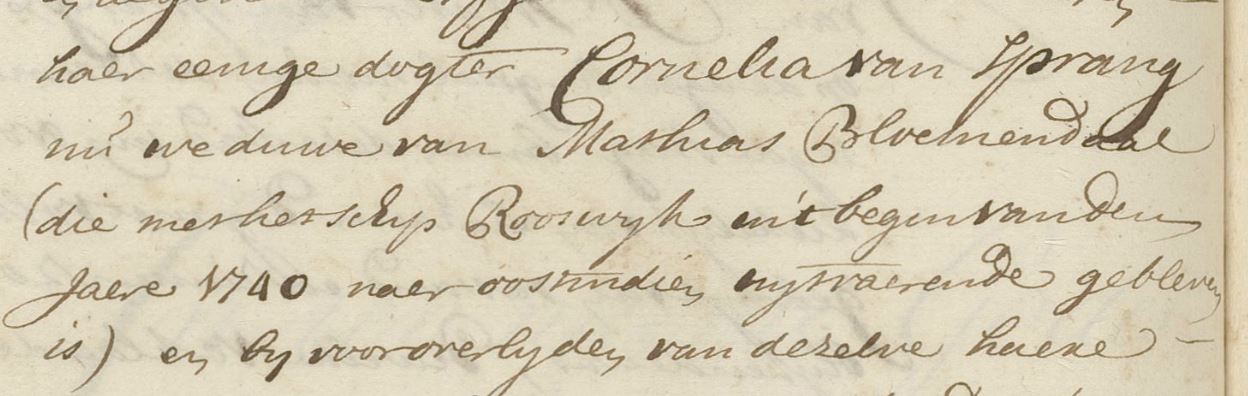 haer eenige dogter Cornelia van Sprang
nu weduwe van Mathias Bloemendaal
(die met het schip Rooswyk in't begin van den
Jaere 1740 naer oostindien uytvaerende gebleven
is) en by vooroverlyden van dezelve haere -